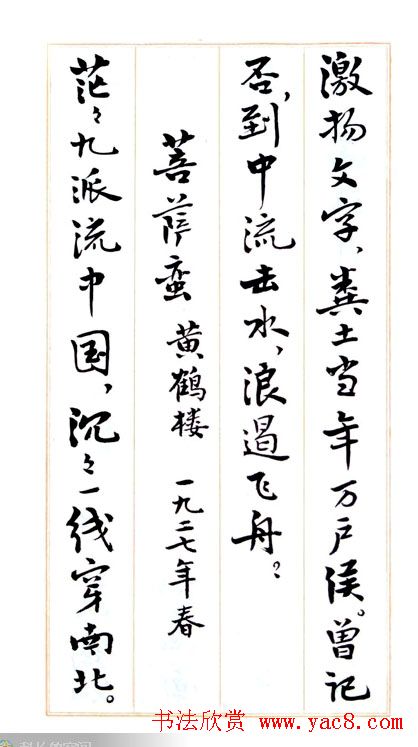 激扬文字、粪土当年万户侯。曾记
否,到中流击水,浪遏飞舟?
菩萨蛮 黄鹤楼 一九二七年春
茫々九派流中国,沉々一线穿南北。
书法欣赏 www.yac8.com